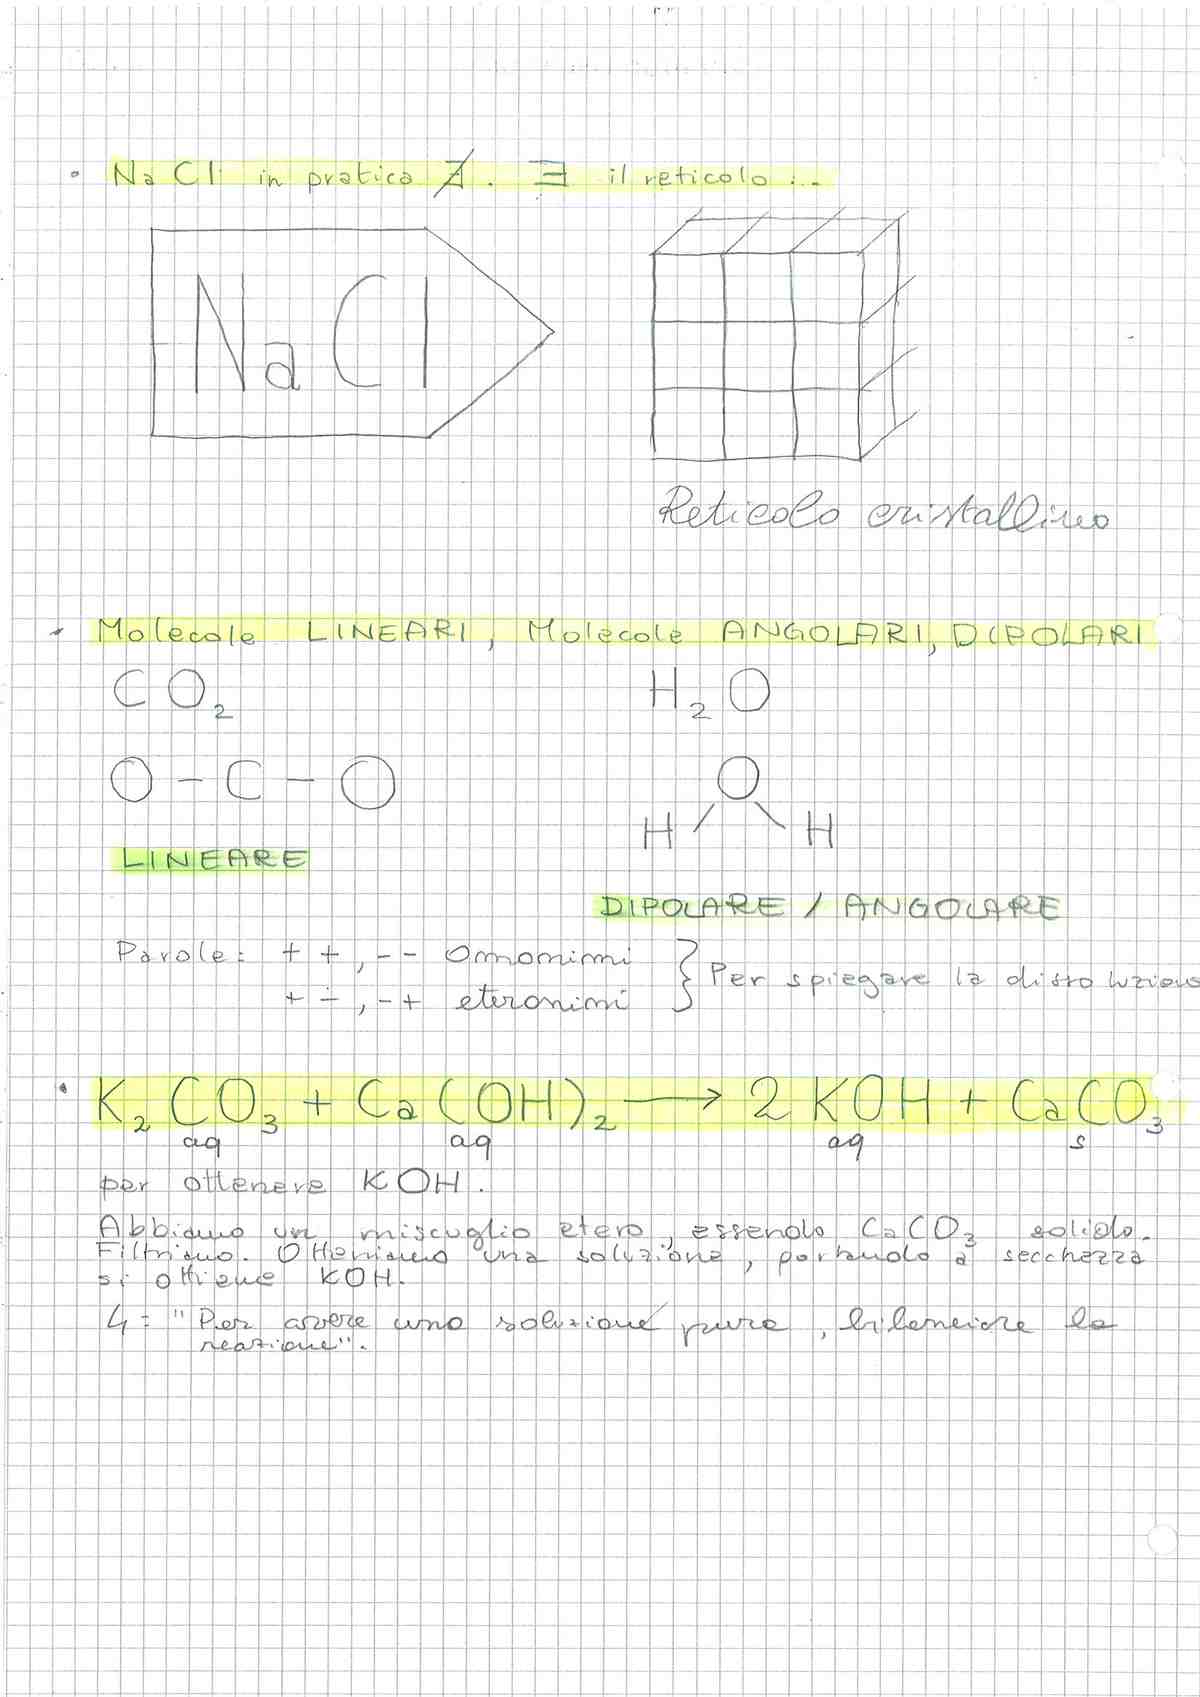 • NaCl in pratica ∄. ∃ il reticolo...
NaCl
Reticolo cristallino
• Molecole LINEARI, Molecole ANGOLARI, DIPOLARI
CO₂ H₂O
O – C – O O
H / \ H
LINEARE
DIPOLARE / ANGOLARE
Parole: + +, - - Omonimi
+ -, - + eteronimi } Per spiegare la dissoluzione
• K₂CO₃ + Ca(OH)₂ → 2 KOH + CaCO₃
aq aq aq s
per ottenere KOH.
Abbiamo un miscuglio etero, essendo CaCO₃ solido.
Filtriamo. Otteniamo una soluzione, portando a secchezza
si ottiene KOH.
4 = "Per avere una soluzione pura, bilanciare la
reazione".